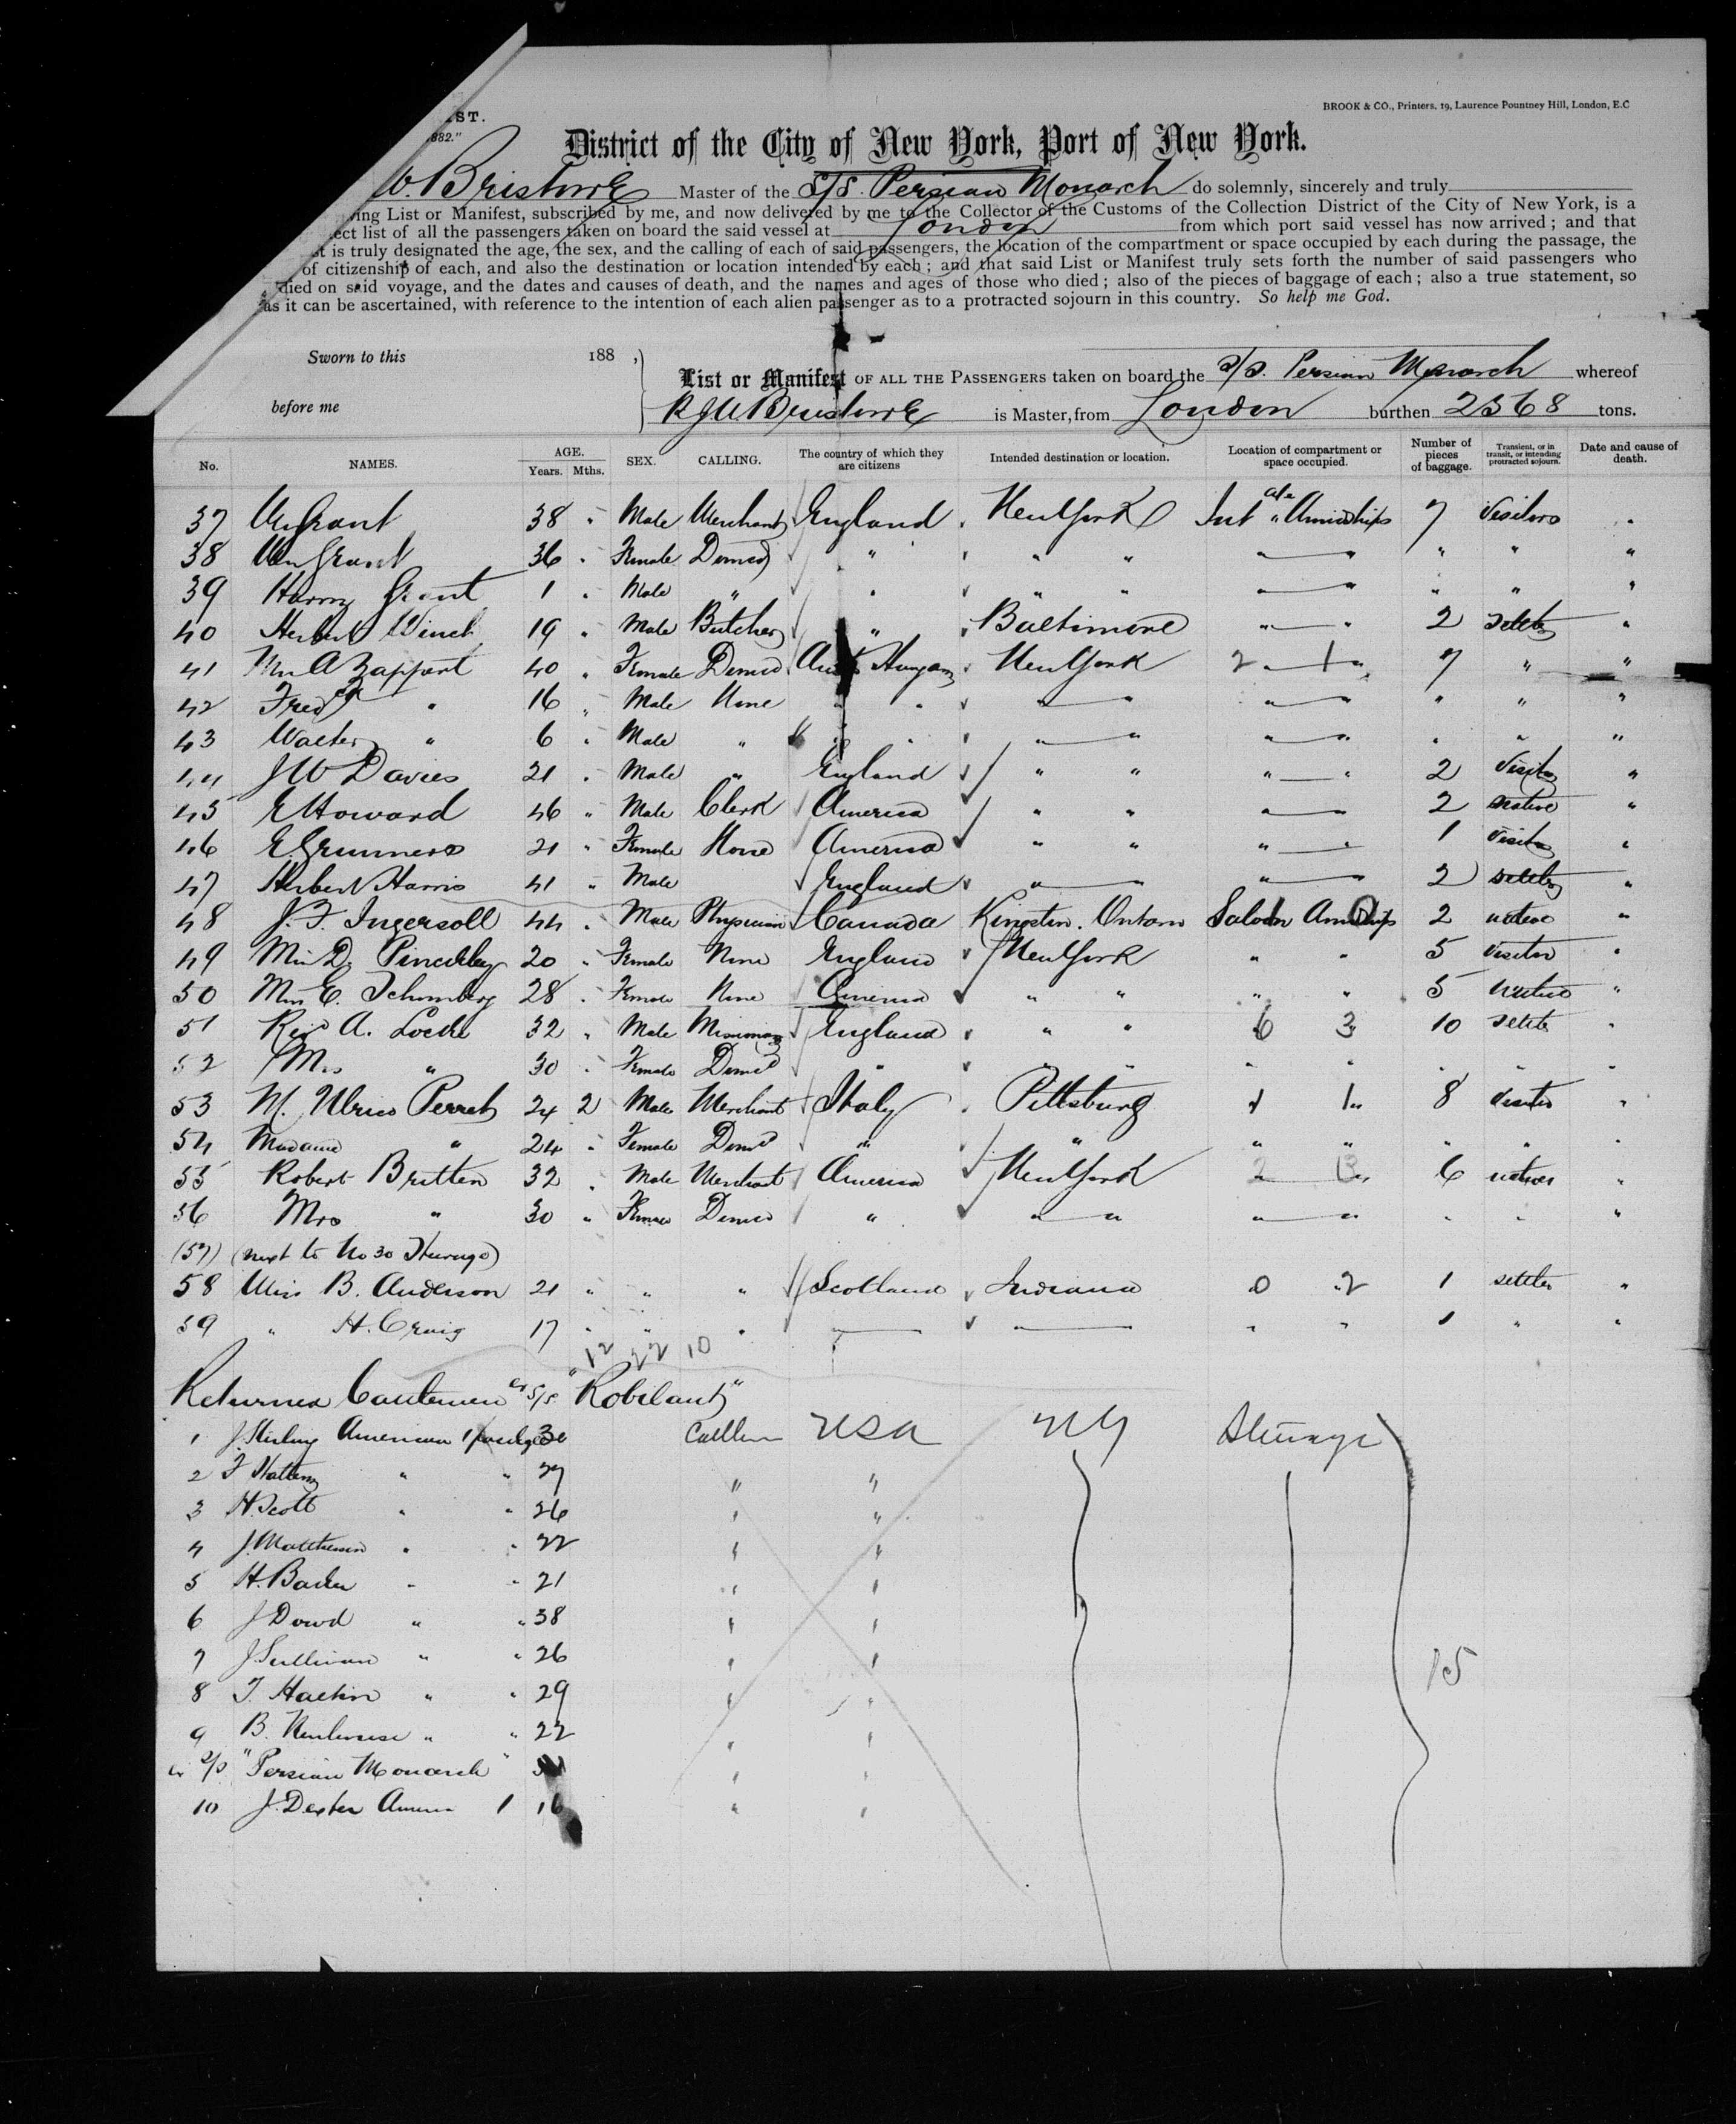 ST.
BROOK & CO., Printers, 19, Laurence Pountney Hill, London, E.C
882."
District of the City of New York, Port of New York.
Master of the S/S. Persian Monarch do solemnly, sincerely and truly
ing List or Manifest, subscribed by me, and now delivered by me to the Collector of the Customs of the Collection District of the City of New York, is a
ect list of all the passengers taken on board the said vessel at London from which port said vessel has now arrived ; and that
st is truly designated the age, the sex, and the calling of each of said passengers, the location of the compartment or space occupied by each during the passage, the
of citizenship of each, and also the destination or location intended by each ; and that said List or Manifest truly sets forth the number of said passengers who
died on said voyage, and the dates and causes of death, and the names and ages of those who died ; also of the pieces of baggage of each ; also a true statement, so
as it can be ascertained, with reference to the intention of each alien passenger as to a protracted sojourn in this country. So help me God.
Sworn to this 188 ,
before me
List or Manifest OF ALL THE PASSENGERS taken on board the S/S. Persian Monarch whereof
is Master, from London burthen 2568 tons.
No. NAMES. AGE. Years. Mths. SEX. CALLING. The country of which they are citizens Intended destination or location. Location of compartment or space occupied. Number of pieces of baggage. Transient, or in transit, or intending protracted sojourn. Date and cause of death.
37 Grant 38 " Male Merchant England New York Amidships 7 Visitors "
38 Grant 36 " Female Domes " " " " " " " "
39 Harry Grant 1 " Male " " " " " " " " "
40 Herbert Winch 19 " Male Butcher " Baltimore " " 2 settler "
41 Mrs A Zappert 40 " Female Domes Hungary New York 2 1 7 " "
42 Fred " 16 " Male None " " " " " " " " "
43 Walter " 6 " Male " " " " " " " " " "
44 J W Davies 21 " Male " England " " " " 2 Visitor "
45 E Howard 46 " Male Clerk America " " " " 2 native "
46 E. 21 " Female None America " " " " 1 Visitor "
47 Herbert Harris 41 " Male England " " " " 2 settler "
48 J. F. Ingersoll 44 " Male Physician Canada Kingston. Ontario Saloon Amidships 2 native "
49 Miss D. 20 " Female None England New York " " 5 visitor "
50 E. Schomberg 28 " Female None America " " " " 5 native "
51 Revd A. Locke 32 " Male Missionary England " " 6 3 10 settler "
52 Mrs " 30 " Female Domes " " " " " " " "
53 M. Ulrico Perret 24 2 Male Merchant Italy Pittsburg 1 8 visitor "
54 Madame " 24 " Female Domes " " " " " " "
55 Robert Britten 32 " Male Merchant America New York 2 6 natives "
56 Mrs " 30 " Female Domes " " " " " " " "
(57) (next to No 30
58 Miss B. Anderson 21 " " " Scotland Indiana 0 2 1 settler "
59 " H. Craig 17 " " " " " 1 " "
12 22 10
Returned Cattlemen ex S/S "Robilant"
1 J. Stirling American 1 package 30 Cattlem USA NY Steerage
2 F 27 " "
3 H. Scott " " 26 " "
4 J. Matthewson " " 22 " "
5 H. " " 21 " "
6 J Dowd " " 38 " "
7 J. Sullivan " " 26 " "
15
8 " " 29 " "
9 B. " " 22 " "
ex S/S "Persian Monarch"
10 J. Dexter 1 16 " "